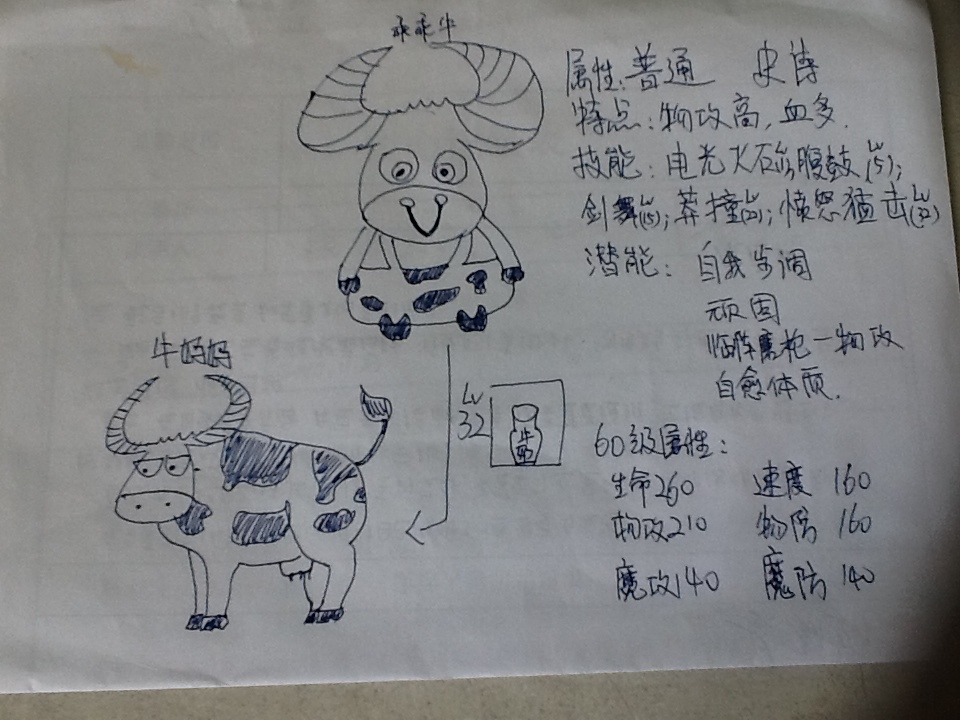 乖乖牛
属性:普通 史诗
特点:物攻高,血多.
技能:电光火石(1);腹鼓(Lv5);
剑舞(Lv15);莽撞(Lv21);愤怒猛击(Lv32)
潜能:自我步调
顽固
临阵磨枪—物攻
自愈体质.
牛妈妈
Lv
32
60级属性:
生命260 速度 160
物攻210 物防 160
魔攻140 魔防 140